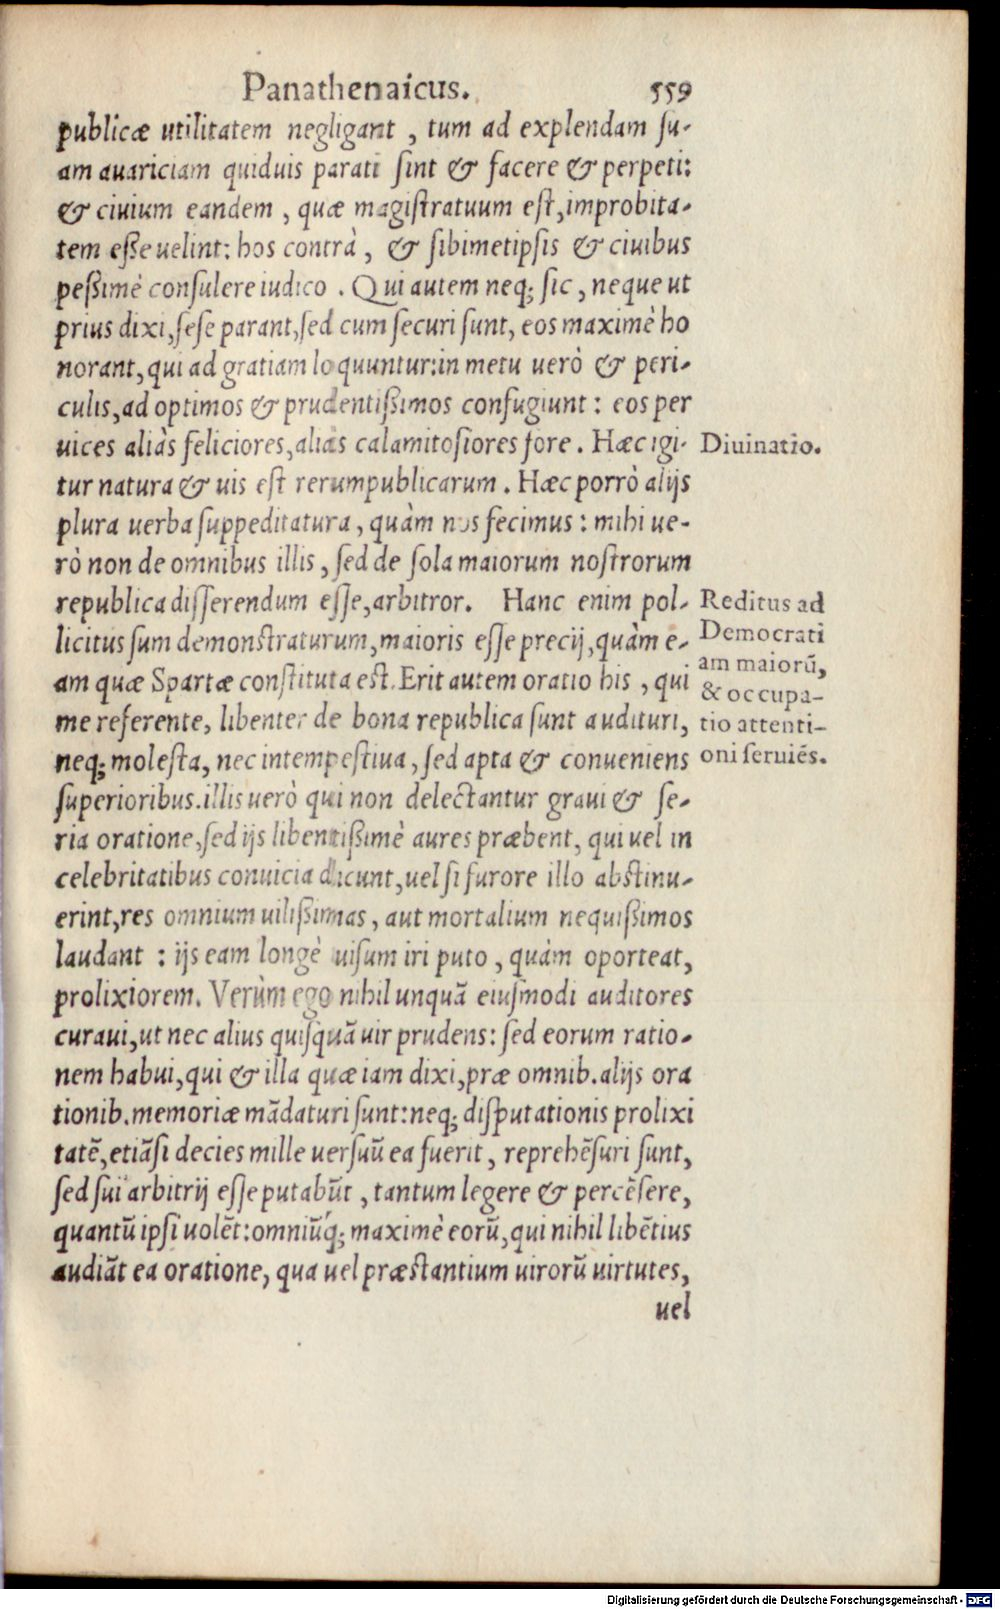 Panathenaicus. 559
publicæ utilitatem negligant, tum ad explendam ſu-
am auariciam quiduis parati ſint & facere & perpeti:
& ciuium eandem, quæ magiſtratuum eſt, improbita-
tem eſſe uelint: hos contrà, & ſibimetipſis & ciuibus
peßimè conſulere iudico. Qui autem neq; ſic, neque ut
prius dixi, ſeſe parant, ſed cum ſecuri ſunt, eos maximè ho
norant, qui ad gratiam loquuntur: in metu uerò & peri-
culis, ad optimos & prudentißimos confugiunt: eos per
uices aliàs feliciores, aliàs calamitoſiores fore. Hæc igi-
Diuinatio.
tur natura & uis eſt rerumpublicarum. Hæc porrò alijs
plura uerba ſuppeditatura, quàm nos fecimus: mihi ue-
rò non de omnibus illis, ſed de ſola maiorum noſtrorum
republica diſſerendum eſſe, arbitror. Hanc enim pol-
licitus ſum demonſtraturum, maioris eſſe precij, quàm e-
am quæ Spartæ conſtituta eſt. Erit autem oratio his, qui
me referente, libenter de bona republica ſunt audituri,
neq; moleſta, nec intempeſtiua, ſed apta & conueniens
Reditus ad
Democrati
am maiorũ,
& occupa-
tio attenti-
oni ſeruiẽs.
ſuperioribus. illis uerò qui non delectantur graui & ſe-
ria oratione, ſed ijs libentißimè aures præbent, qui uel in
celebritatibus conuicia dicunt, uel ſi furore illo abſtinu-
erint, res omnium uilißimas, aut mortalium nequißimos
laudant: ijs eam longè uiſum iri puto, quàm oporteat,
prolixiorem. Verùm ego nihil unquã eiuſmodi auditores
curaui, ut nec alius quiſquã uir prudens: ſed eorum ratio-
nem habui, qui & illa quæ iam dixi, præ omnib. alijs ora
tionib. memoriæ mãdaturi ſunt: neq; diſputationis prolixi
tatẽ, etiãſi decies mille uerſuũ ea fuerit, reprehẽſuri ſunt,
ſed ſui arbitrij eſſe putabũt, tantum legere & percẽſere,
quantũ ipſi uolẽt: omniũq́; maximè eorũ, qui nihil libẽtius
audiãt ea oratione, qua uel præſtantium uirorũ uirtutes,
uel
Digitalisierung gefördert durch die Deutsche Forschungsgemeinschaft - DFG